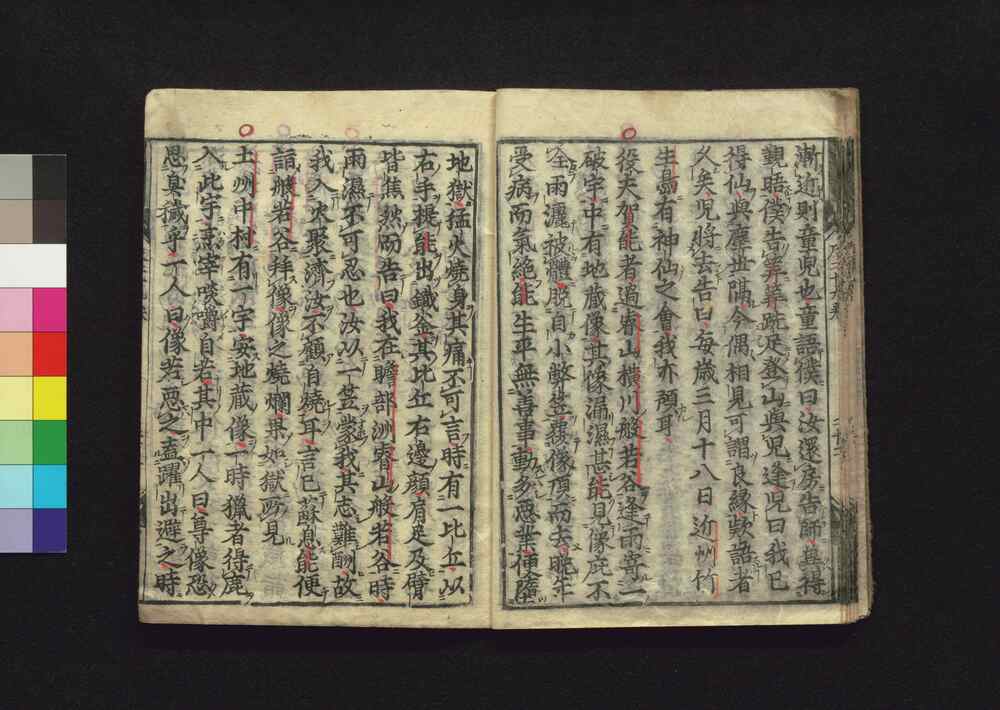 漸近則童兒也童語僕曰汝還房告師其得
覲晤僕告筭筭跣足登山與兒逢兒曰我已
得仙與塵世隔今偶相見可謂良緣歟語者
久矣兒將去告曰每歲三月十八日近州竹
生島有神仙之會我亦預耳
役夫賀能者過睿山橫川般若谷逢雨寄一
破宇中有地藏像其像漏濕甚能見像庇不
全雨灑被體脫自小弊笠覆像頂而去晚年
受病而氣絕能生平無善事動多惡業便墮
地獄猛火燒身其痛不可言時有一比丘以
右手提能出鐵釜其比丘右邊顏肩足及臂
皆焦然而告曰我在瞻部洲睿山般若谷時
雨濕不可忍也汝以一笠蒙我其志難酬故
我入火聚濟汝不顧自燒耳言已蘇息能便
詣般若谷拜像像之燒爛果如獄所見
土州中村有一宇安地藏像一時獵者得鹿
入此宇烹宰啖嚼自若其中一人曰尊像恐
思臭穢乎一人曰像若惡之盍躍出避之時